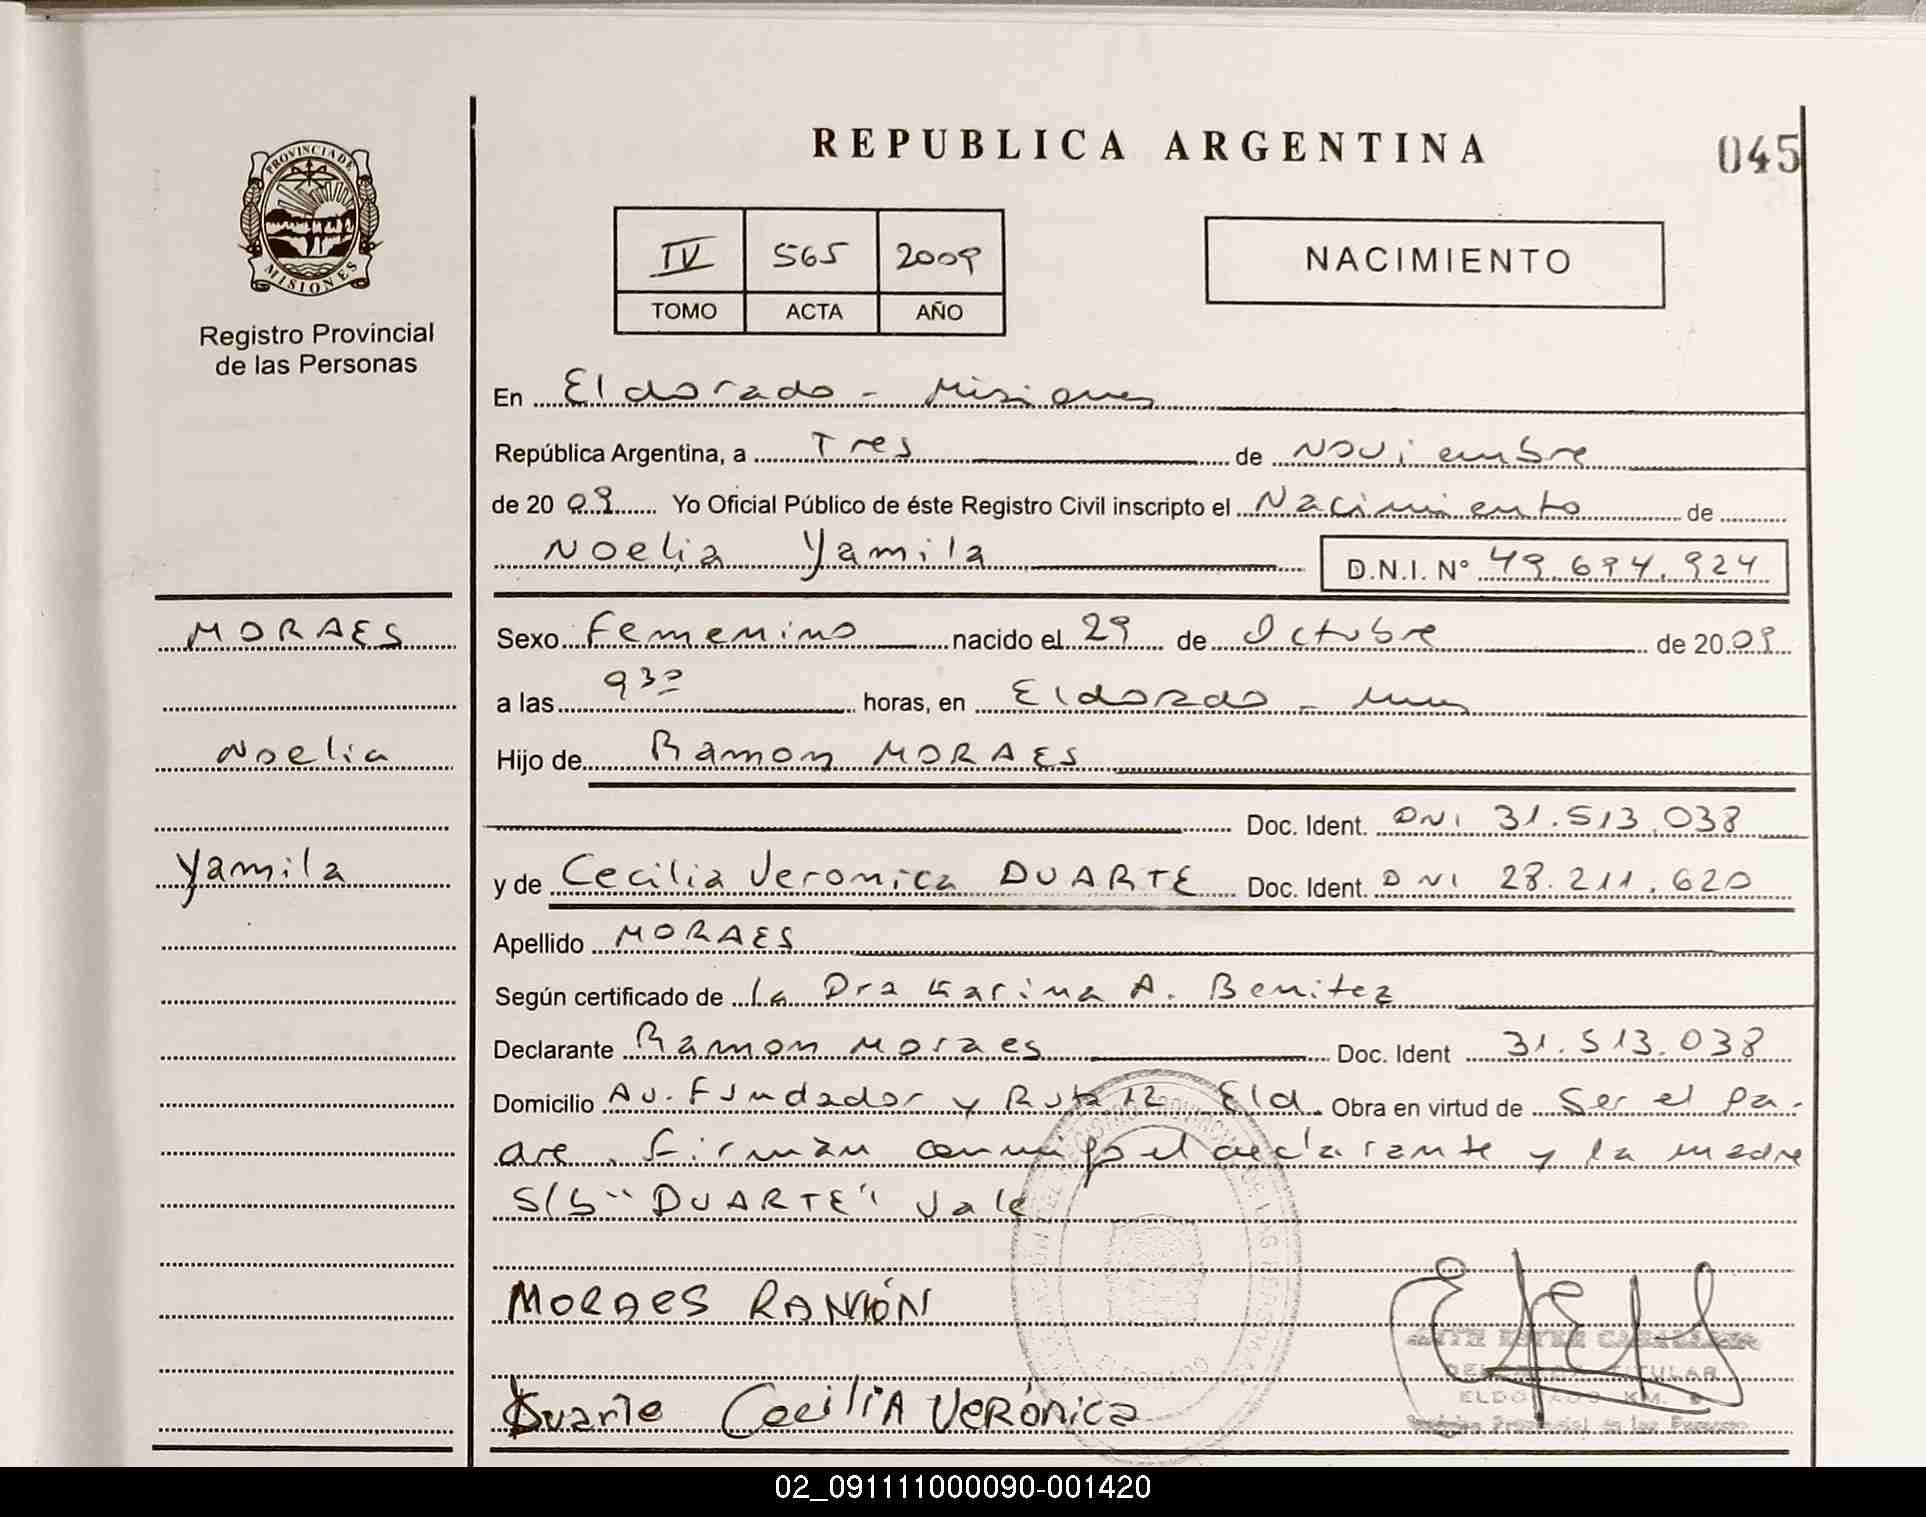 REPUBLICA ARGENTINA
045
PROVINCIA DE
MISIONES
Registro Provincial
de las Personas
IV 565 2009
TOMO ACTA AÑO
NACIMIENTO
En Eldorado - Misiones
República Argentina, a Tres de Noviembre
de 2009 Yo Oficial Público de éste Registro Civil inscripto el Nacimiento de
Noelia Yamila D.N.I. Nº 49.694.924
MORAES
Noelia
Yamila
Sexo Femenino nacido el 29 de Octubre de 2009
a las 930 horas, en Eldorado -
Hijo de Ramon MORAES
Doc. Ident. DNI 31.513.038
y de Cecilia Veronica DUARTE Doc. Ident. DNI 28.211.620
Apellido MORAES
Según certificado de la Dra Karina A. Benitez
Declarante Ramon Moraes Doc. Ident 31.513.038
Domicilio Av. Fundador y Ruta 12 Eld. Obra en virtud de Ser el Pa-
dre. Firman conmigo el declarante y la madre
S/S "DUARTE" Vale
MORAES RAMÓN
Duarte CeciliA VeRónica
ELDORADO KM.
02_091111000090-001420